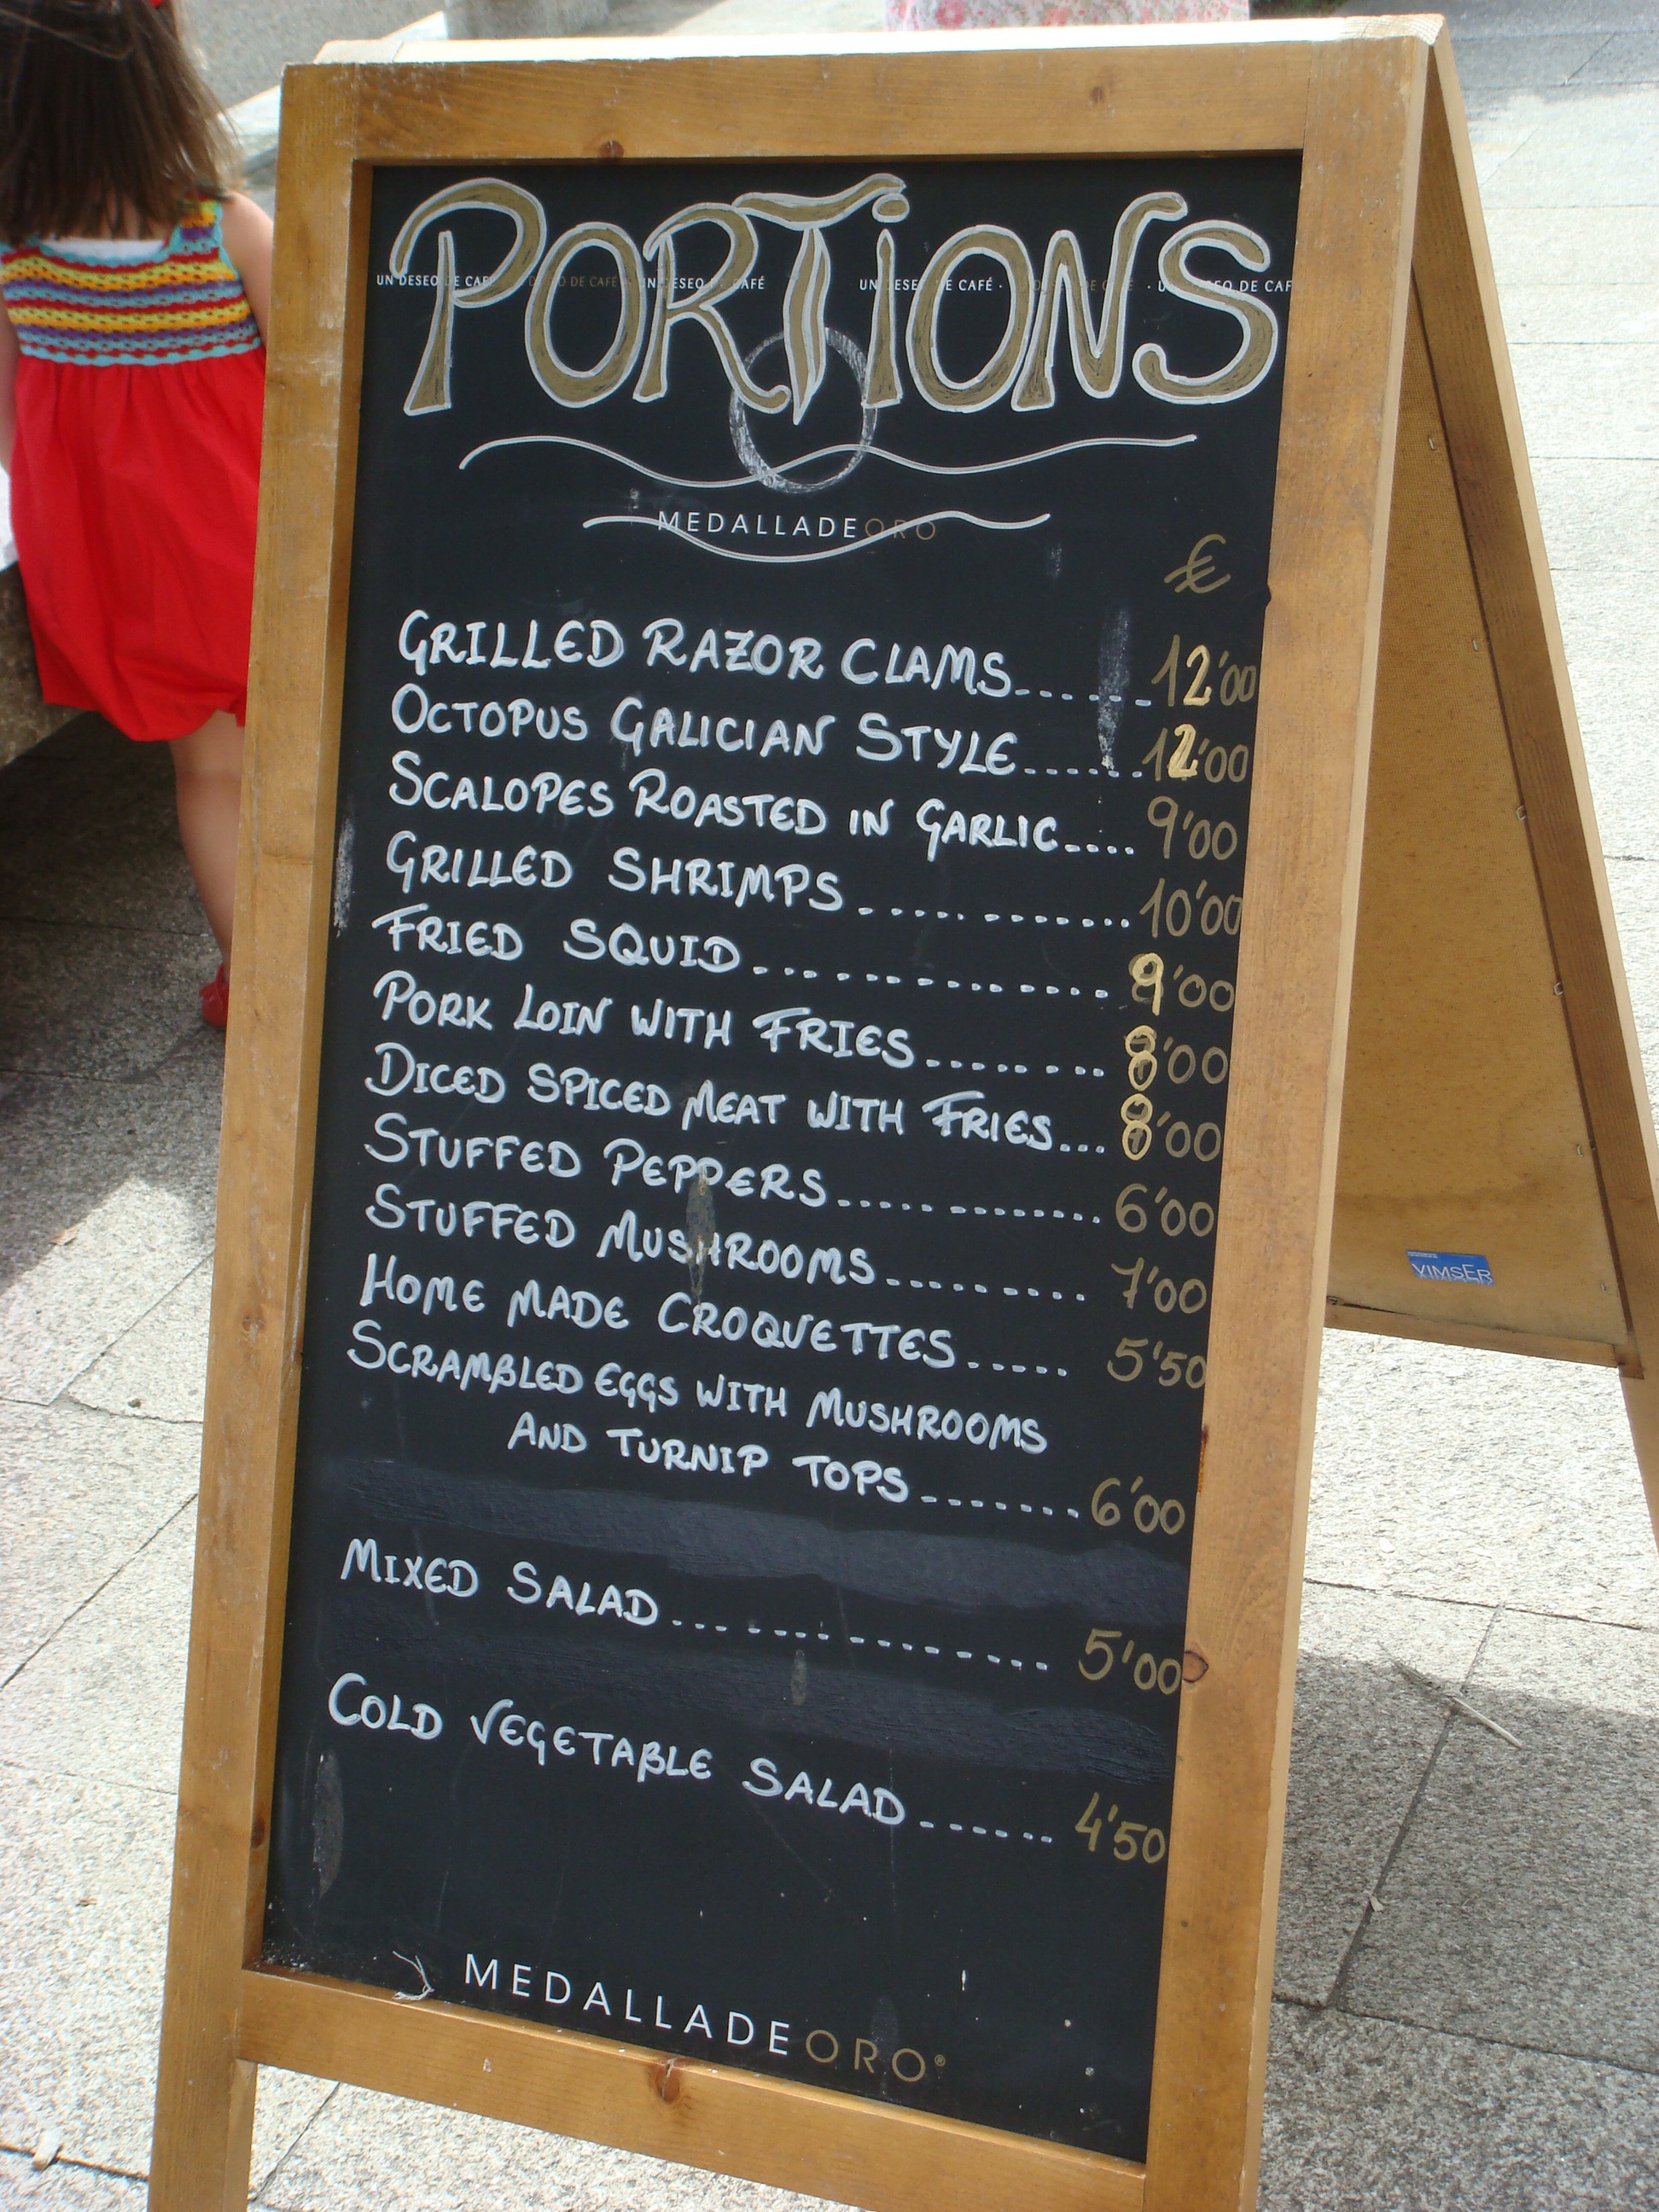 PORTIONS
UN DESEO DE CAFÉ · UN DESEO DE CAFÉ · UN DESEO DE CAFÉ UN DESEO DE CAFÉ · UN DESEO DE CAFÉ · UN DESEO DE CAF
MEDALLADEORO
€
GRILLED RAZOR CLAMS......12'00
OCTOPUS GALICIAN STYLE.......12'00
SCALOPES ROASTED IN GARLIC.... 9'00
GRILLED SHRIMPS............. 10'00
FRIED SQUID............... 9'00
PORK LOIN WITH FRIES......... 8'00
DICED SPICED MEAT WITH FRIES... 8'00
STUFFED PEPPERS............. 6'00
STUFFED MUSHROOMS......... 7'00
HOME MADE CROQUETTES..... 5'50
SCRAMBLED EGGS WITH MUSHROOMS
AND TURNIP TOPS.......6'00
MIXED SALAD............... 5'00
COLD VEGETABLE SALAD...... 4'50
MEDALLADEORO®
VIMSER